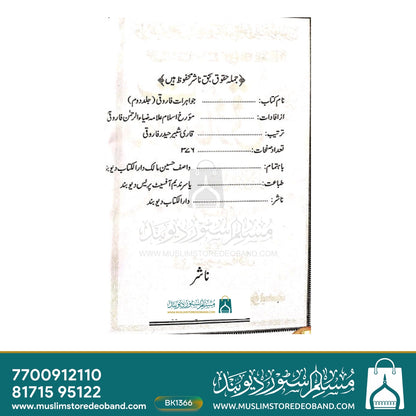 ﴿جملہ حقوق بحق ناشر محفوظ ہیں﴾
نام کتاب: ........ جواہرات فاروقی (جلد دوم)
از افادات: ........ مؤرخ اسلام علامہ ضیاء الرحمٰن فاروقی
ترتیب: ........ قاری شبیر حیدر فاروقی
تعداد صفحات: ........ ۳۷۶
باہتمام: ........ واصف حسین مالک دارالکتاب دیوبند
طباعت: ........ یاسر ندیم آفسیٹ پریس دیوبند
ناشر: ........ دارالکتاب دیوبند
مسلم سٹور دیوبند
WWW.MUSLIMSTOREDEOBAND.COM
ناشر
مسلم سٹور دیوبند
WWW.MUSLIMSTOREDEOBAND.COM
7700912110
81715 95122
www.muslimstoredeoband.com
BK1366
مسلم سٹور دیوبند
WWW.MUSLIMSTOREDEOBAND.COM